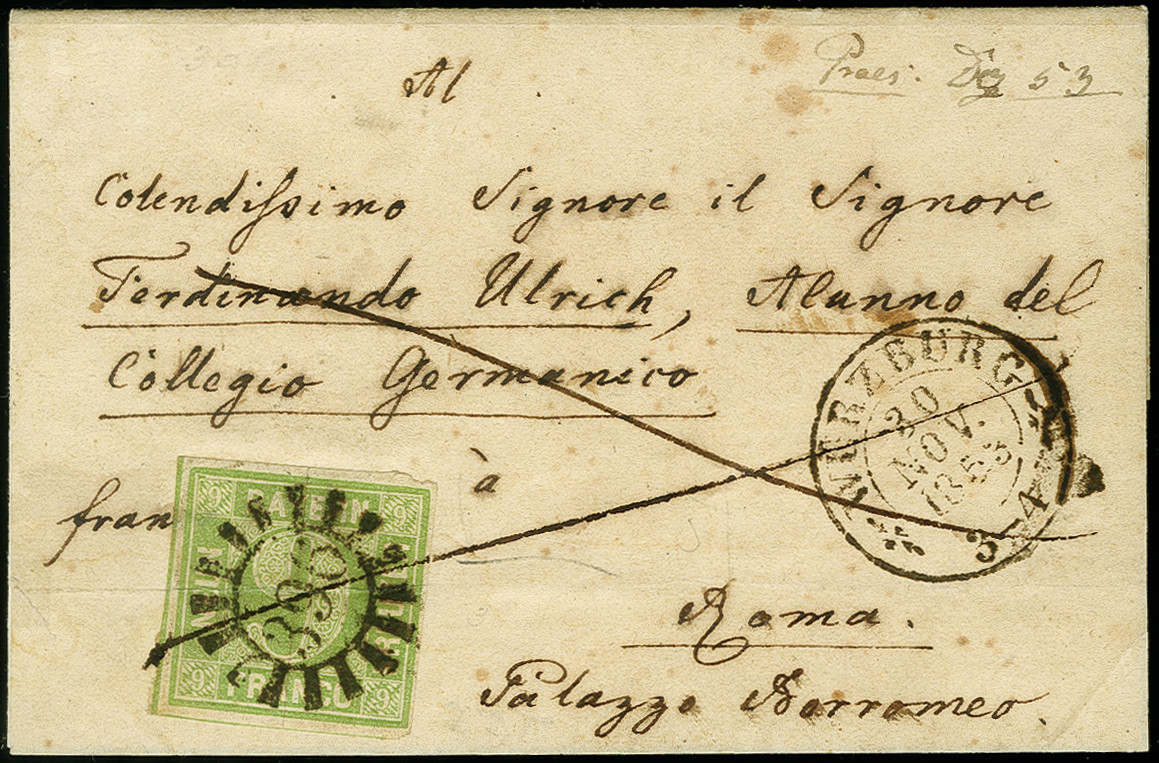 Praes. Dez 53
Al
Colendissimo Signore il Signore
Ferdinando Ulrich, Alunno del
Collegio Germanico
à
fran
Roma.
Palazzo Borromeo.
WÜRZBURG
30
NOV.
1853
3-4
9 BAYERN 9
NEUN
396
9 FRANCO 9